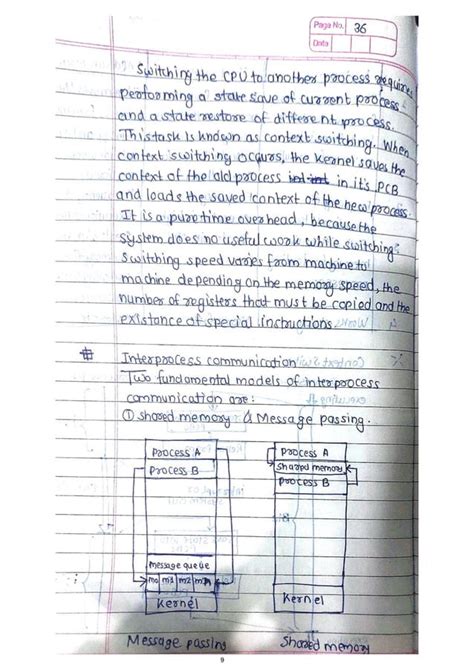 Page No. 36
Date
Switching the CPU to another process requires
performing a state save of current process
and a state restore of different process.
This task is known as context switching. When
context switching occurs, the kernel saves the
context of the old process in it's PCB
and loads the saved context of the new process.
It is a pure time overhead, because the
system does no useful work while switching.
Switching speed varies from machine to
machine depending on the memory speed, the
number of registers that must be copied and the
existance of special instructions.
# Interprocess communication
Two fundamental models of interprocess
communication are:
① shared memory & Message passing.
process A
process B
message queue
m0 m1 m2 m3
Kernel
Message passing
process A
shared memory
process B
Kernel
Shared memory
9